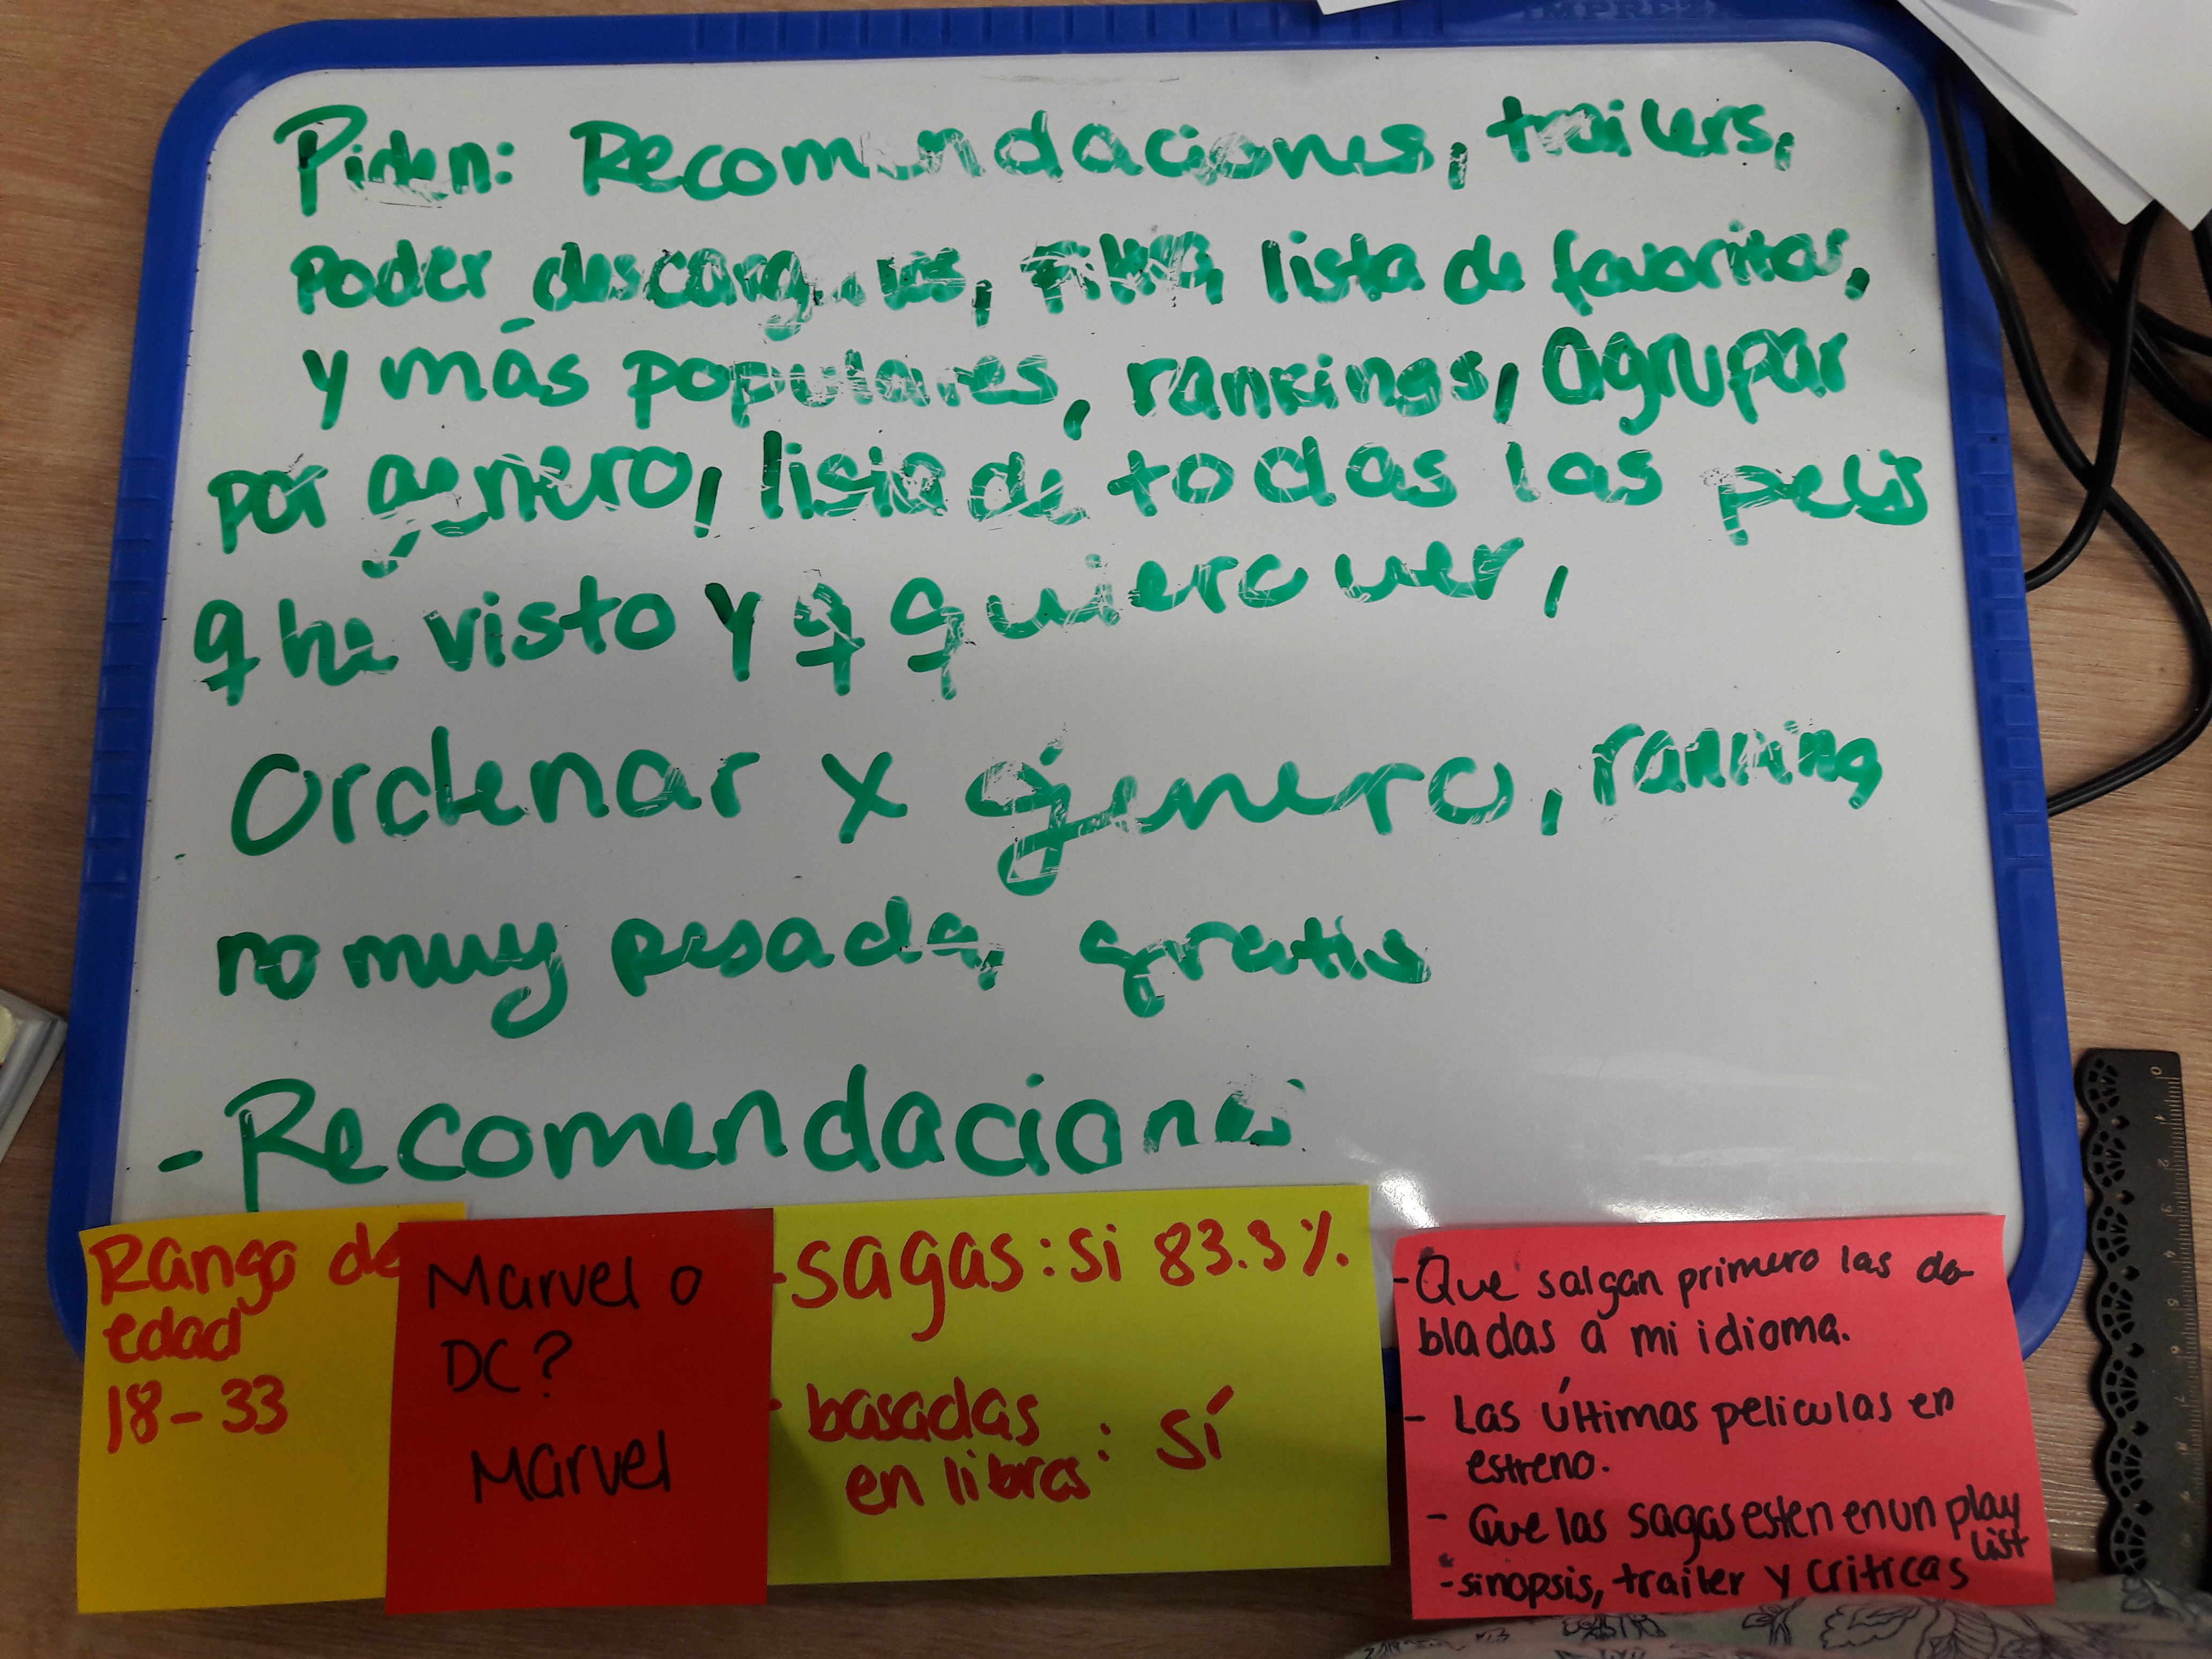 Piden: Recomendaciones, trailers,
poder descargarlas, lista de favoritas,
y más populares, rankings, Agrupar
por género, lista de todas las pelis
q he visto y q quiero ver,
Ordenar x género, ranking
no muy pesada, gratis
- Recomendaciones
Rango de
edad
18-33
Marvel o
DC?
Marvel
- sagas: si 83.3%
- basadas
en libros: Sí
- Que salgan primero las do-
bladas a mi idioma.
- Las últimas peliculas en
estreno.
- Que las sagas esten en un play
list
- sinopsis, trailer y críticas
0 1 2 3 4 5 6 7 8 9 10